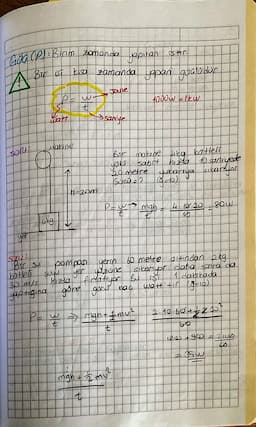 Güç (P): Birim zamanda yapılan iştir.
Bir işi kısa zamanda yapan güçlüdür
P = w/t
joule
saniye
watt
1000W = 1kW
Soru
makine
Bir makine 4kg kütleli
yükü sabit hızla 10 saniyede
20 metre yukarıya çıkarıyor
gücü = ? (g=10)
h=20m
4kg
yer
P = w/t → mgh/t = 4.10.20/10 = 80W
Soru:
Bir su pompası yerin 60 metre altından 2kg
kütleli suyu yer yüzüne çıkarıyor daha sonra da
hızla fırlatıyor. Bu işi 1 dakikada
yaptığına göre gücü kaç watt tır (g=10)
P = w/t ⇒ mgh + ½mv² / t
60
= 35W
mgh + ½mv² / t